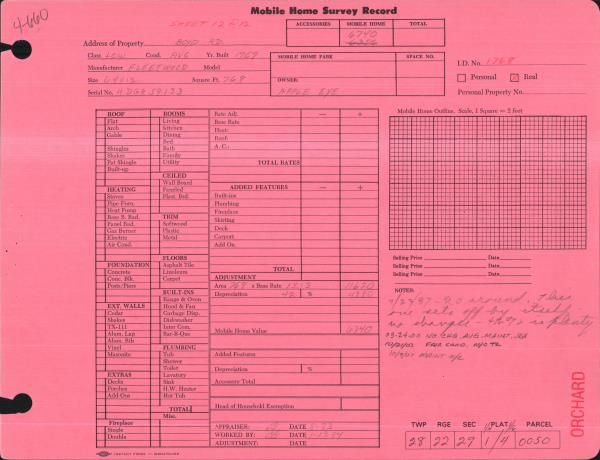 4-660
Mobile Home Survey Record
SHEET 12 of 12
ACCESSORIES MOBILE HOME TOTAL
6740
Address of Property BOYD RD
Class LOW Cond. AVG Yr. Built 1969
Manufacturer FLEETWOOD Model
Size 64x12 Square Ft. 768
Serial No.
MOBILE HOME PARK SPACE NO.
OWNER:
APPLE EYE
I.D. No. 1768
Personal Real
Personal Property No.
ROOF
Flat
Arch
Gable
Shingles
Shakes
Fat Shingle
Built-up
HEATING
Stoves
Pipe Furn.
Heat Pump
Base B. Rad.
Panel Rad.
Gas Burner
Electric
Air Cond.
FOUNDATION
Concrete
Conc. Blk.
Posts/Piers
EXT. WALLS
Cedar
Shakes
TX-111
Alum. Lap
Alum. Rib
Vinyl
Masonite
EXTRAS
Decks
Porches
Add-Ons
Fireplace
Single
Double
ROOMS
Living
Kitchen
Dining
Bed
Bath
Family
Utility
CEILED
Wall Board
Paneled
Plast. Boil.
TRIM
Softwood
Plastic
Metal
FLOORS
Asphalt Tile
Linoleum
Carpet
BUILT-INS
Range & Oven
Hood & Fan
Garbage Disp.
Dishwasher
Inter Com.
Bar-B-Que
PLUMBING
Tub
Shower
Toilet
Lavatory
Sink
H.W. Heater
Hot Tub
TOTAL
Misc.
Rate Adj. — +
Base Rate
Heat:
Roof:
A. C.:
TOTAL RATES
ADDED FEATURES — +
Built-ins
Plumbing
Fireplace
Skirting
Deck
Carport
Add On
TOTAL
ADJUSTMENT
Area 768 x Base Rate 15.13 11620
Depreciation 42 % 4880
Mobile Home Value 6740
Added Features
Depreciation %
Accessory Total
Head of Household Exemption
APPRAISER: DATE
WORKED BY: DATE
ADJUSTMENT: DATE
Mobile Home Outline. Scale, 1 Square = 2 feet
Selling Price Date
Selling Price Date
Selling Price Date
NOTES:
around. This
one sets off by itself
no change.
NO CHG AVG. MAINT.
FAIR COND, N/C
MAINT N/C
ORCHARD
TWP RGE SEC PLAT PARCEL
28 22 29 1/4 0050